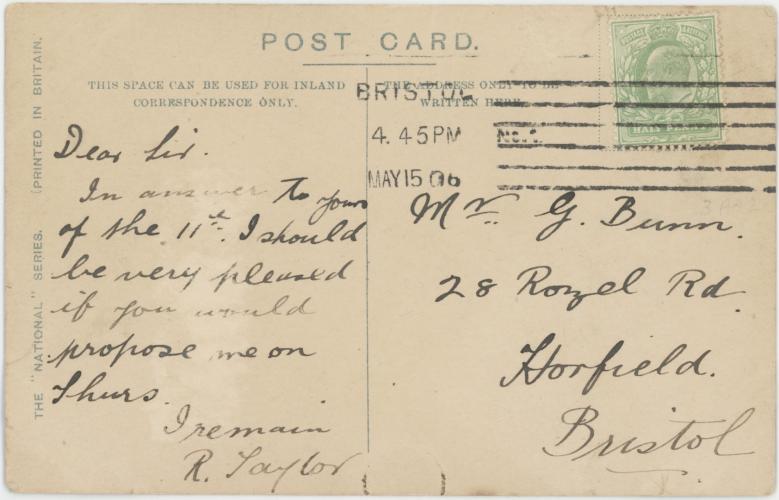 POST CARD.
THIS SPACE CAN BE USED FOR INLAND
CORRESPONDENCE ONLY.
THE ADDRESS ONLY TO BE
WRITTEN HERE.
BRISTOL
4.45PM
No.1.
MAY 15 06
POSTAGE & REVENUE
HALF PENNY
Dear Sir.
In answer to yours
of the 11th. I should
be very pleased
if you would
propose me on
Thurs.
I remain
R. Taylor
Mr. G. Bunn.
28 Rozel Rd
Horfield.
Bristol
THE "NATIONAL" SERIES. (PRINTED IN BRITAIN.